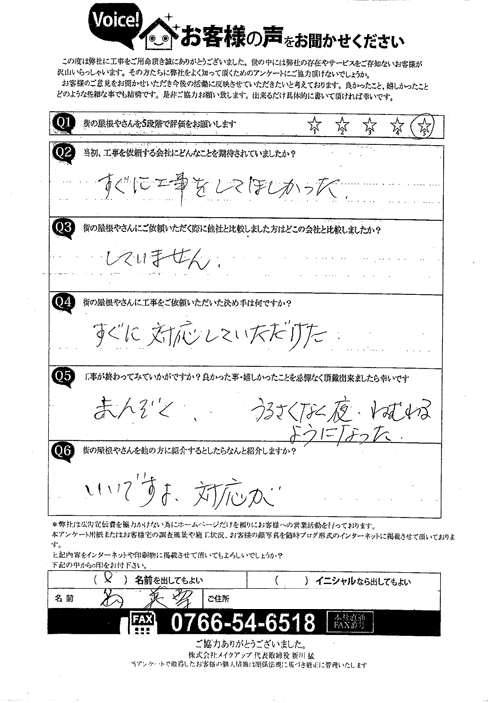 Voice!
お客様の声をお聞かせください
この度は弊社に工事をご用命頂き誠にありがとうございました。世の中には弊社の存在やサービスをご存知ないお客様が
沢山いらっしゃいます。その方たちに弊社をよく知って頂くためのアンケートにご協力頂けないでしょうか。
お客様のご意見をお聞かせいただき今後の活動に反映させていただきたいと考えております。良かったこと、嬉しかったこと
どのような些細な事でも結構です。是非ご協力お願い致します。出来るだけ具体的に書いて頂ければ幸いです。
Q1 街の屋根やさんを5段階で評価をお願いします
Q2 当初、工事を依頼する会社にどんなことを期待されていましたか?
すぐに工事をしてほしかった.
Q3 街の屋根やさんにご依頼いただく際に他社と比較しました方はどこの会社と比較しましたか?
していません.
Q4 街の屋根やさんに工事をご依頼いただいた決め手は何ですか?
すぐに対応していただけた
Q5 工事が終わってみていかがですか?良かった事・嬉しかったことを忌憚なく頂戴出来ましたら幸いです
まんぞく、うるさくなく夜、ねむれる
ようになった
Q6 街の屋根やさんを他の方に紹介するとしたらなんと紹介しますか?
いいですよ、対応が
*弊社は広告宣伝費を極力かけない為にホームページだけを頼りにお客様への営業活動を行っております。
本アンケート用紙またはお客様宅の調査風景や施工状況、お客様の顔写真を随時ブログ形式のインターネットに掲載させて頂いておりま
す。
上記内容をインターネットや印刷物に掲載させて頂いてもよろしいでしょうか?
下記の中から○印をお付下さい。
( ) 名前を出してもよい ( ) イニシャルなら出してもよい
名前 ご住所
FAX 0766-54-6518 本社直通 FAX番号
ご協力ありがとうございました。
株式会社メイクアップ 代表取締役 新川 猛
当アンケートで取得したお客様の個人情報は関係法規に基づき適正に管理いたします